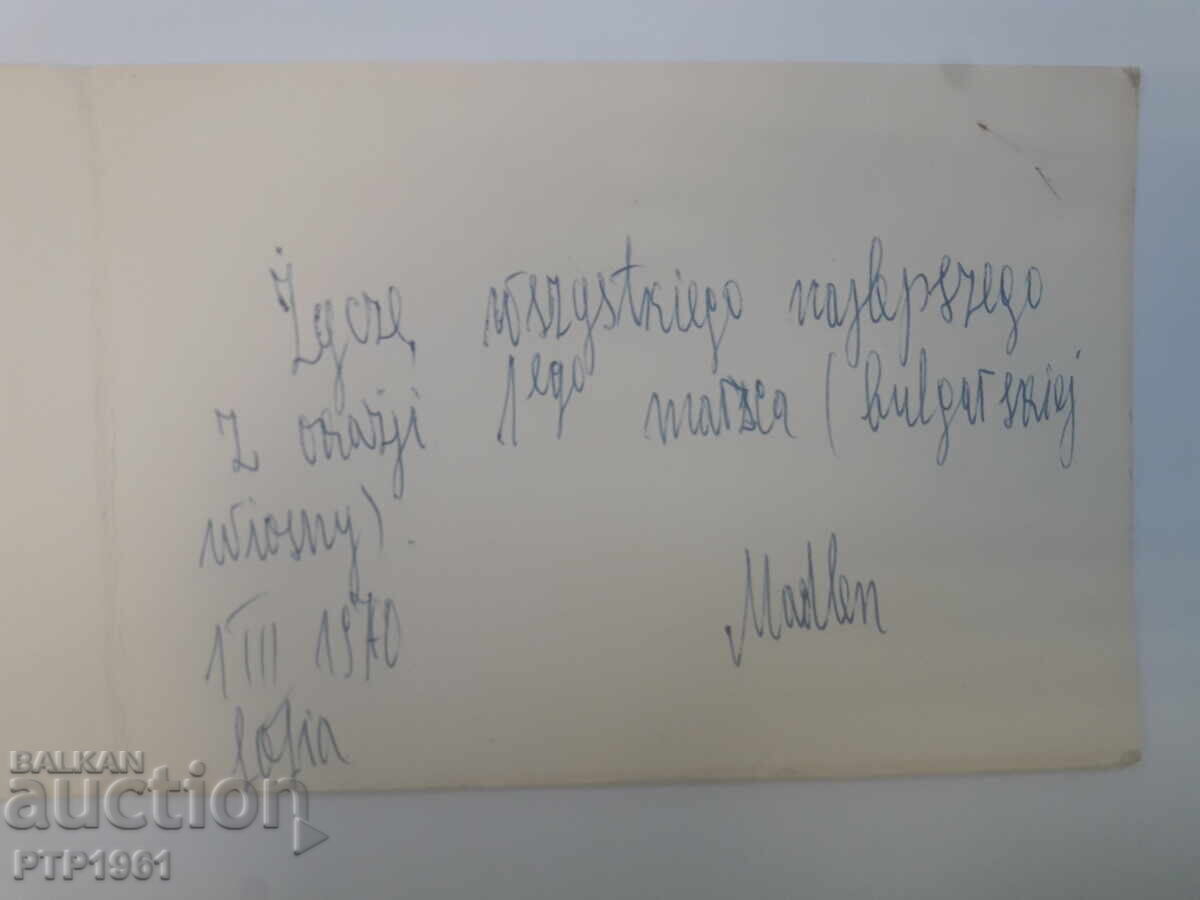 Życzę wszystkiego najlepszego
z okazji 1ego marzca (bulgarskiej
wiosny).
1 III 1970
Madlen
Sofia
BALKAN
auction
PTP1961